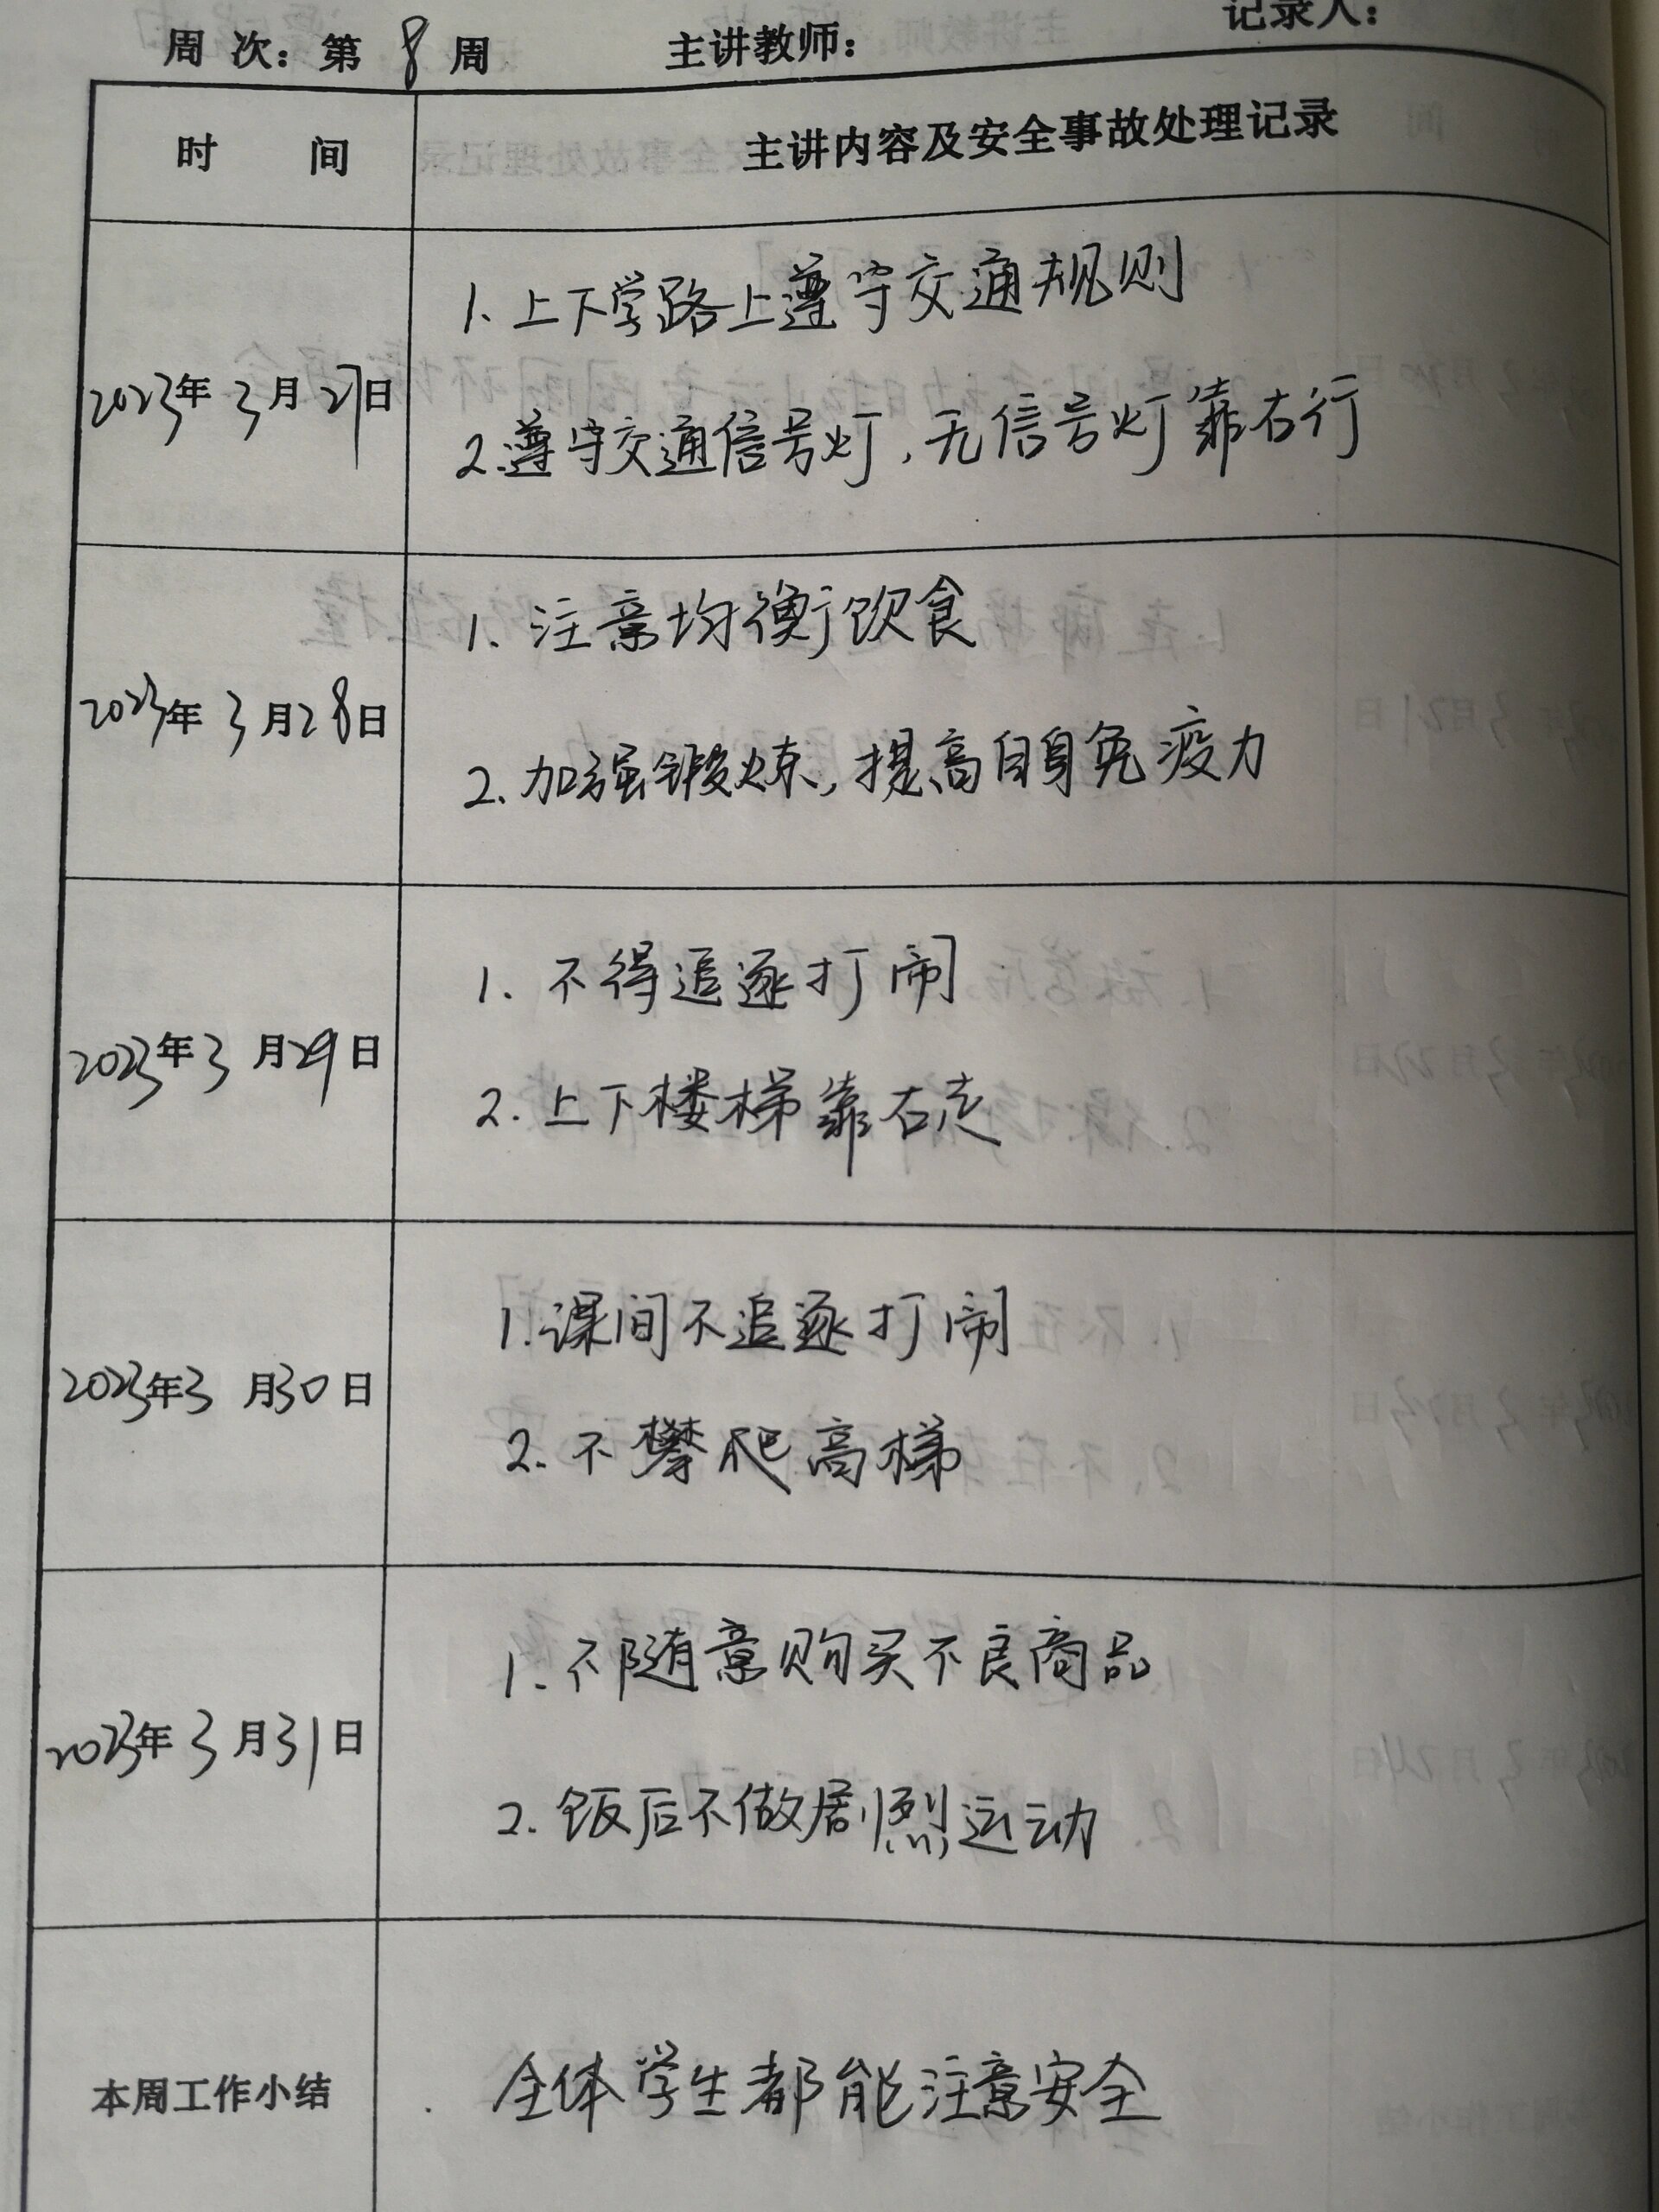 记录人：
周 次：第 8 周 主讲教师：
时 间 主讲内容及安全事故处理记录
1. 上下学路上遵守交通规则
2023年 3月 27日
2.遵守交通信号灯，无信号灯靠右行
1. 注意均衡饮食
2023年 3月28日
2. 加强锻炼，提高自身免疫力
1. 不得追逐打闹
2023年3月29日
2. 上下楼梯靠右走
1.课间不追逐打闹
2023年3月30日
2. 不攀爬高梯
1. 不随意购买不良商品
2023年3月31日
2. 饭后不做剧烈运动
本周工作小结 全体学生都能注意安全